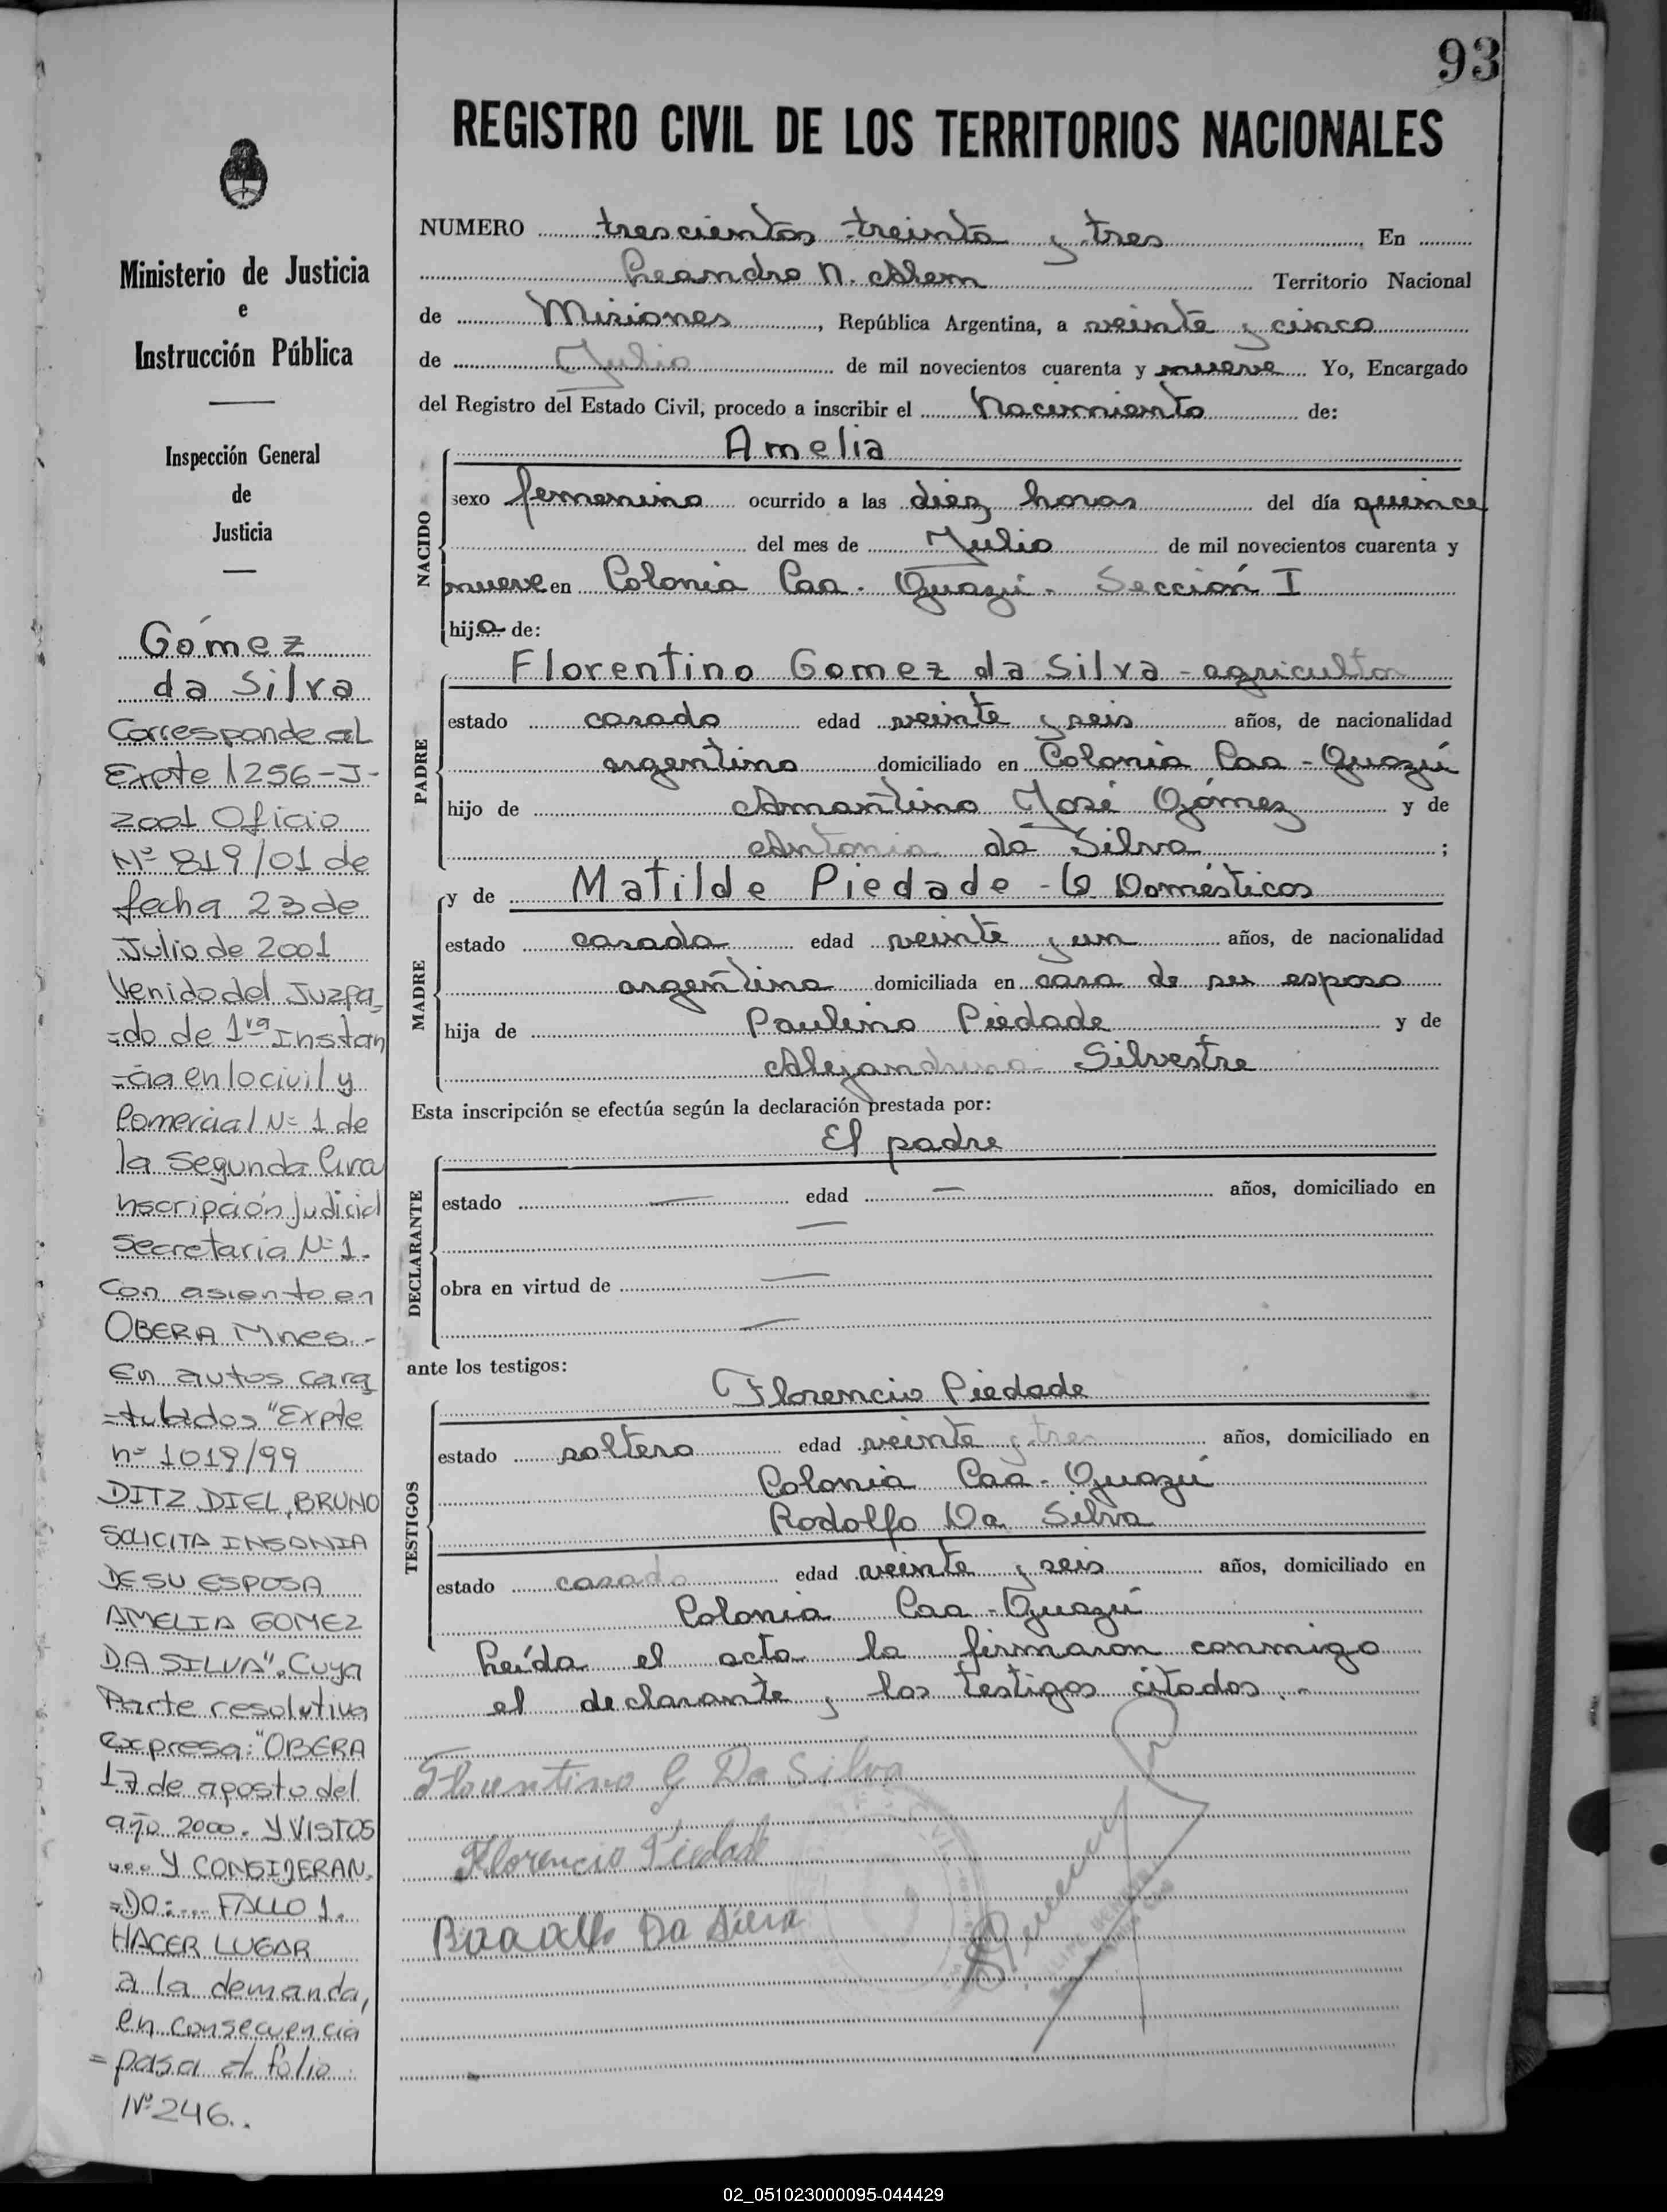 93
REGISTRO CIVIL DE LOS TERRITORIOS NACIONALES
Ministerio de Justicia
e
Instrucción Pública
Inspección General
de
Justicia
Gómez
da Silva
Corresponde al
Expte 1256-J-
2001 Oficio
Nº 819/01 de
fecha 23 de
Julio de 2001
Venido del Juzga
=do de 1ra Instan
=cia en lo civil y
Comercial Nº 1 de
la Segunda Circu
nscripción Judicial
Secretaria Nº 1.
Con asiento en
OBERA Mnes.-
En autos cara
=tulados "Expte
nº 1019/99
DITZ DIEL, BRUNO
SOLICITA INSANIA
DE SU ESPOSA
AMELIA GOMEZ
DA SILVA". Cuya
Parte resolutiva
expresa: "OBERA
17 de agosto del
año 2000. Y VISTOS
... Y CONSIDERAN.
=DO:... FALLO 1.
HACER LUGAR
a la demanda,
en consecuencia
= pasa al folio
Nº 246..
NUMERO trescientos treinta y tres En
Leandro N. Alem Territorio Nacional
de Misiones, República Argentina, a veinte y cinco
de Julio de mil novecientos cuarenta y nueve Yo, Encargado
del Registro del Estado Civil, procedo a inscribir el Nacimiento de:
NACIDO
Amelia
sexo femenino ocurrido a las diez horas del día quince
del mes de Julio de mil novecientos cuarenta y
nueve en Colonia Caa-Guazú - Sección I
hija de:
PADRE
Florentino Gomez da Silva - agricultor
estado casado edad veinte y seis años, de nacionalidad
argentino domiciliado en Colonia Caa-Guazú
hijo de Amantino José Gómez y de
Antonia da Silva ;
MADRE
y de Matilde Piedade - Q Domésticos
estado casada edad veinte y un años, de nacionalidad
argentina domiciliada en casa de su esposo
hija de Paulino Piedade y de
Alejandrina Silvestre
Esta inscripción se efectúa según la declaración prestada por:
DECLARANTE
El padre
estado — edad — años, domiciliado en
—
obra en virtud de —
—
ante los testigos:
TESTIGOS
Florencio Piedade
estado soltero edad veinte y tres años, domiciliado en
Colonia Caa-Guazú
Rodolfo Da Silva
estado casado edad veinte y seis años, domiciliado en
Colonia Caa-Guazú
Leída el acta la firmaron conmigo
el declarante y los testigos citados.-
Florentino G Da Silva
Florencio Piedade
Da Silva
02_051023000095-044429